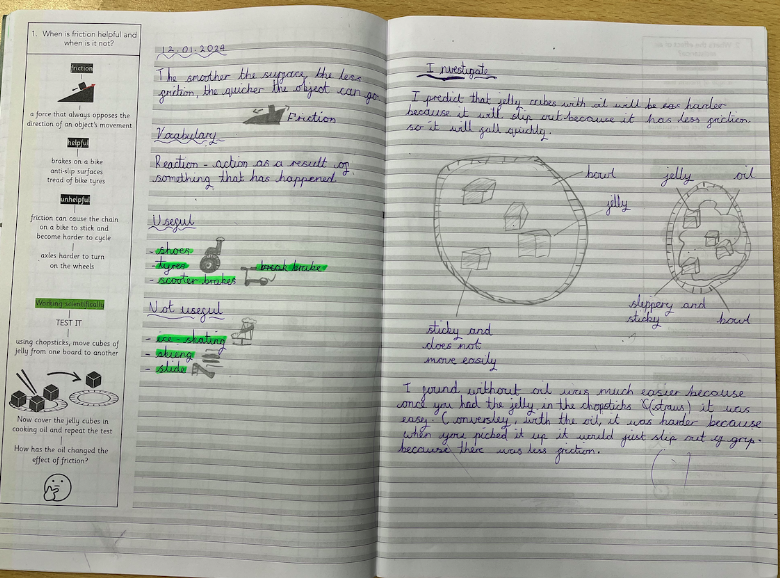 1. When is friction helpful and
when is it not?
friction
a force that always opposes the
direction of an object's movement
helpful
brakes on a bike
anti-slip surfaces
tread of bike tyres
unhelpful
friction can cause the chain
on a bike to stick and
become harder to cycle
axles harder to turn
on the wheels
Working scientifically
TEST IT
using chopsticks, move cubes of
jelly from one board to another
Now cover the jelly cubes in
cooking oil and repeat the test
How has the oil changed the
effect of friction?
12.01.2024
The smoother the surface, the less
friction, the quicker the object can go.
Friction
Vocabulary
Reaction - action as a result of
something that has happened
Useful
- shoes
- tyres break brake
- scooter brakes
Not useful
- ice-skating
- skiing
- slide
Investigate
I predict that jelly cubes with oil will be harder
because it will slip out because it has less friction
so it will fall quickly.
bowl
jelly
sticky and
does not
move easily
jelly oil
slippery and
sticky bowl
I found without oil was much easier because
once you had the jelly in the chopsticks (straws) it was
easy. Conversley, with the oil, it was harder because
when you picked it up it would just slip out of grip.
because there was less friction.